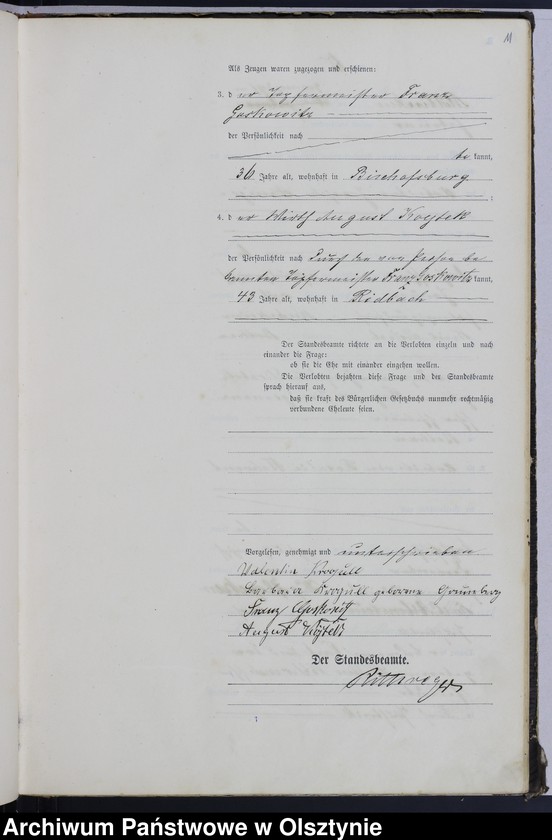 11
Als Zeugen waren zugezogen und erschienen:
3. der Töpfermeister Franz
Goskowitz
der Persönlichkeit nach
bekannt,
36 Jahre alt, wohnhaft in Bischofsburg
;
4. der Wirth August Koytek
der Persönlichkeit nach durch den von Person be
kannten Töpfermeister Franz Goskowitz kannt,
43 Jahre alt, wohnhaft in Ridbach
Der Standesbeamte richtete an die Verlobten einzeln und nach
einander die Frage:
ob sie die Ehe mit einander eingehen wollen.
Die Verlobten bejahten diese Frage und der Standesbeamte
sprach hierauf aus,
daß sie kraft des Bürgerlichen Gesetzbuchs nunmehr rechtmäßig
verbundene Eheleute seien.
Vorgelesen, genehmigt und unterschrieben
Valentin Krogull
Barbara Krogull geborene Grunenberg
Franz
August
Der Standesbeamte.
Archiwum Państwowe w Olsztynie